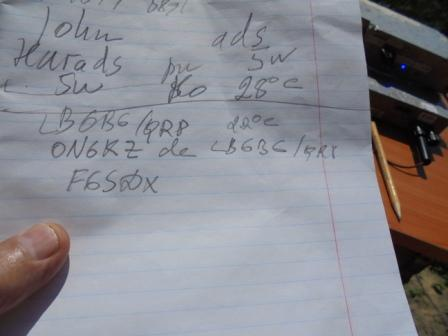 John ads
Harads pw 5W
5W 28°C
LB6BG/QRP 22°C
ON6KZ de LB6BG/QRP
F6SØX